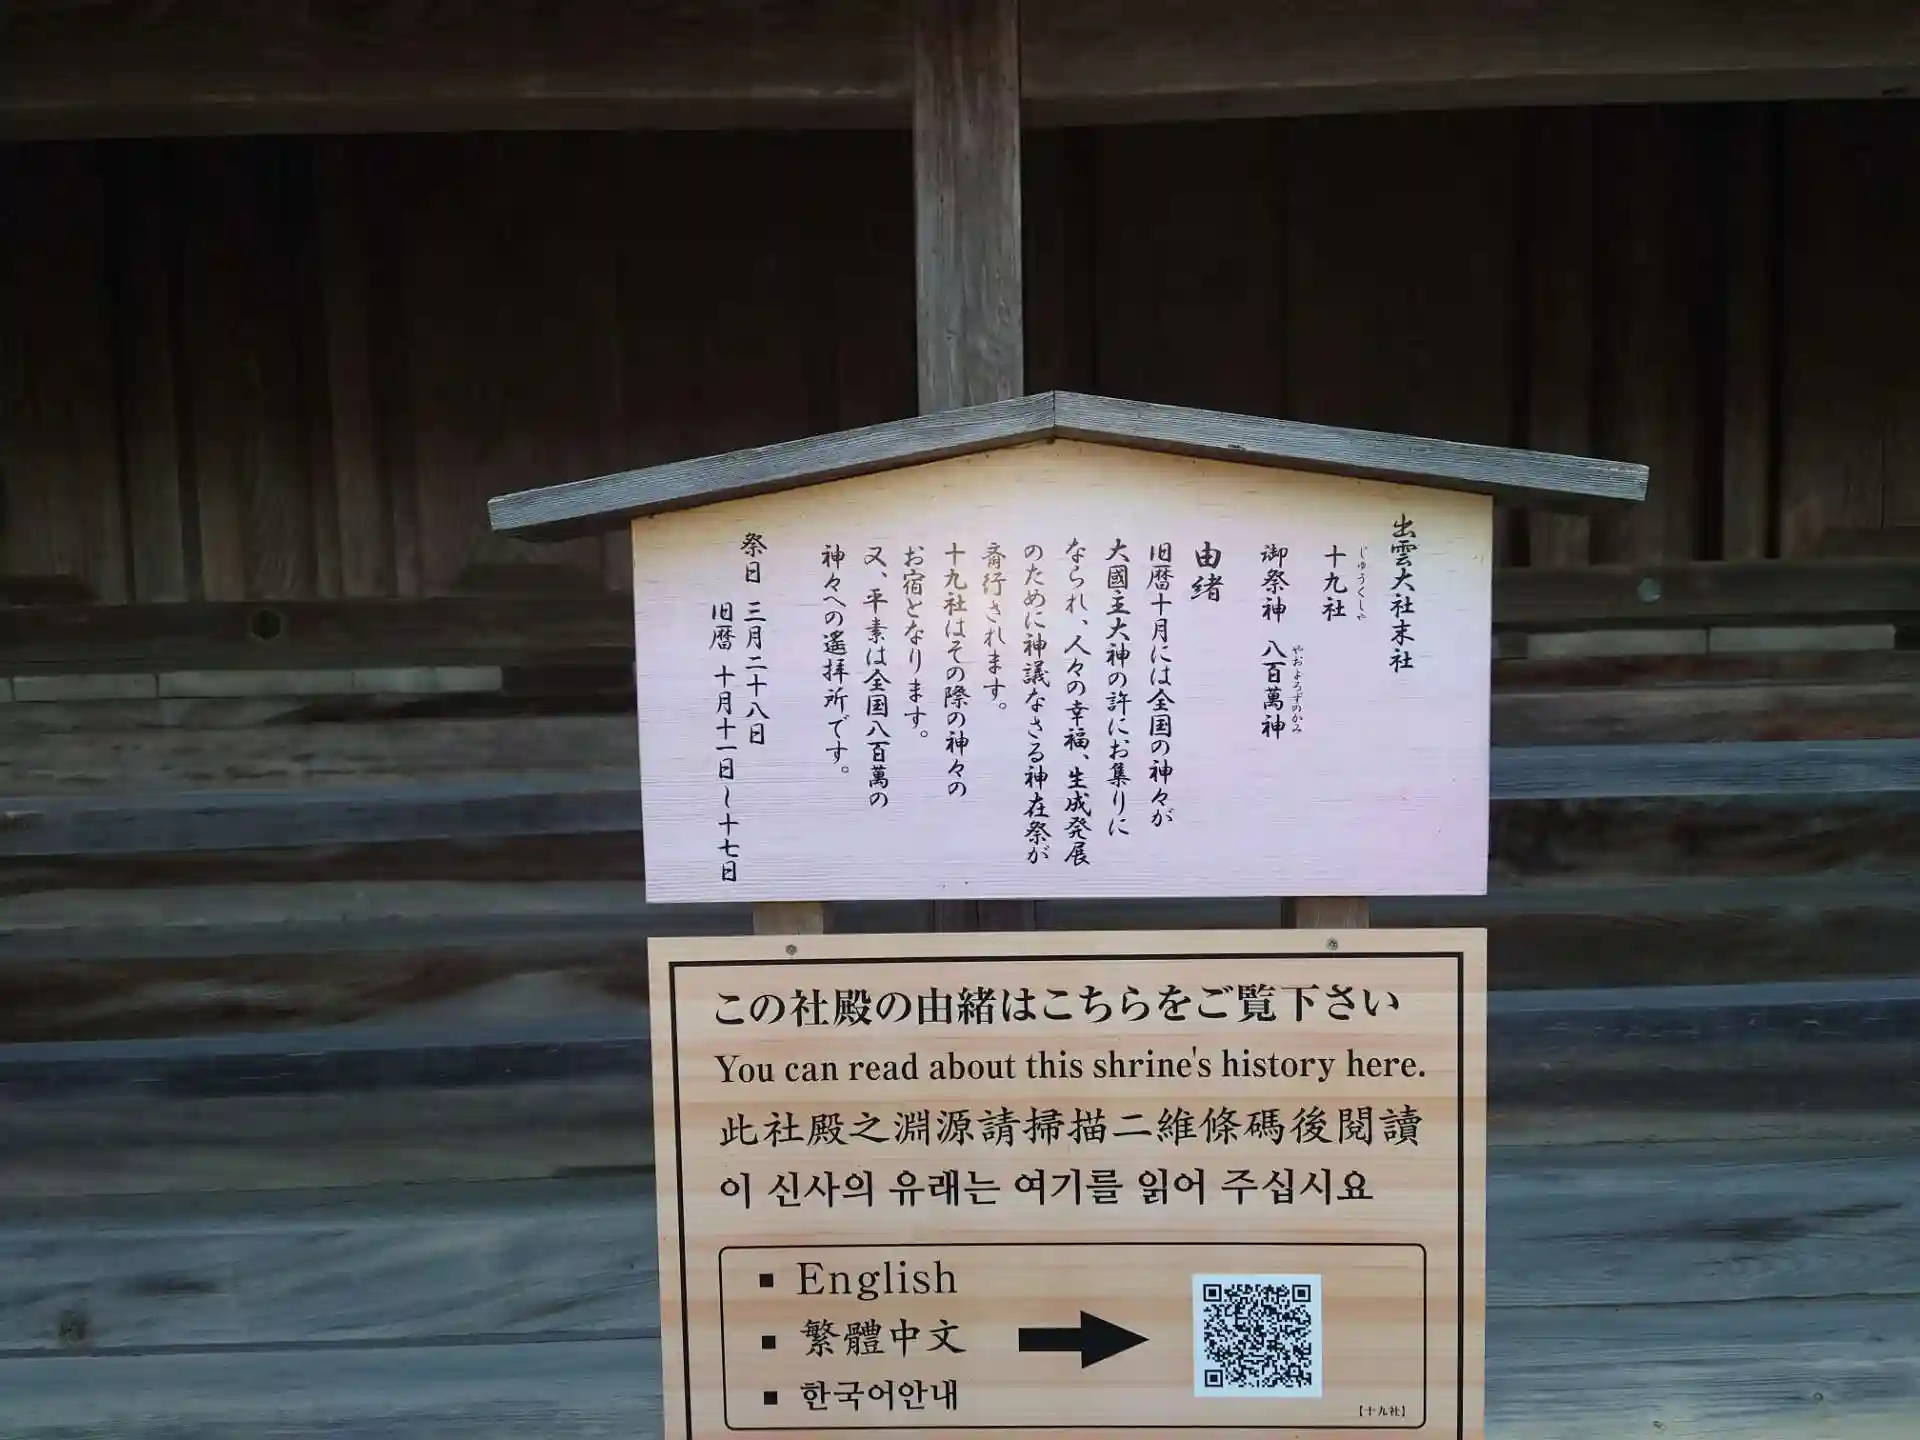 出雲大社末社
じゅうくしゃ
十九社
やおよろずのかみ
御祭神 八百萬神
由緒
旧暦十月には全国の神々が
大國主大神の許にお集りに
なられ、人々の幸福、生成発展
のために神議なさる神在祭が
斎行されます。
十九社はその際の神々の
お宿となります。
又、平素は全国八百萬の
神々への遙拝所です。
祭日 三月二十八日
旧暦 十月十一日~十七日
この社殿の由緒はこちらをご覧下さい
You can read about this shrine's history here.
此社殿之淵源請掃描二維條碼後閱讀
이 신사의 유래는 여기를 읽어 주십시요
▪ English
▪ 繁體中文
▪ 한국어안내
【十九社】